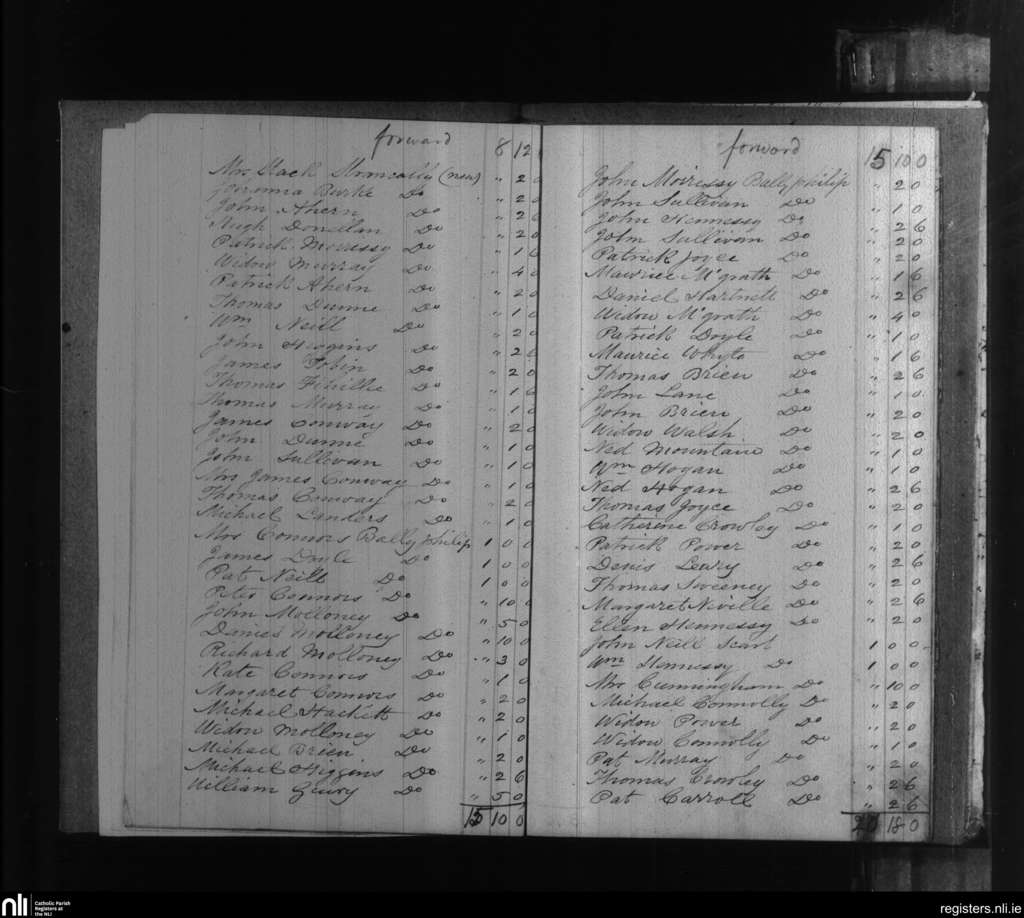 forward 8 12
Mrs Stack (new) " 2 0
Johanna Burke Do " 2 0
John Ahern Do " 2 0
Hugh Donellan Do " 2 0
Patrick Morressy Do " 1 6
Widow Murray Do " 4 0
Patrick Ahern Do " 2 0
Thomas Dunne Do " 1 0
Wm Neill Do " 2 0
John Higgins Do " 2 0
James Tobin Do " 2 0
Thomas Do " 1 6
Thomas Murray Do " 1 0
James Conway Do " 2 0
John Dunne Do " 1 0
John Sullivan Do " 1 0
Mrs James Conway Do " 1 0
Thomas Conway Do " 2 0
Michael Landers Do " 1 0
Mrs Connors Ballyphilip 1 0 0
James Doyle Do 1 0 0
Pat Neill Do 1 0 0
Peter Connors Do " 10 0
John Molloney Do " 5 0
Daniel Molloney Do " 10 0
Richard Molloney Do " 3 0
Kate Connors Do " 1 0
Margaret Connors Do " 2 0
Michael Hackett Do " 2 0
Widow Molloney Do " 1 0
Michael Brien Do " 2 0
Michael Higgins Do " 2 6
William Geary Do " 5 0
15 10 0
forward 15 10 0
John Moiressy Ballyphilip " 2 0
John Sullivan Do " 1 0
John Hennessy Do " 2 6
John Sullivan Do " 2 0
Patrick Joyce Do " 2 0
Maurice McGrath Do " 1 6
Daniel Hartnett Do " 2 6
Widow McGrath Do " 4 0
Patrick Doyle Do " 1 0
Maurice Whyte Do " 1 6
Thomas Brien Do " 2 6
John Lane Do " 1 0
John Brien Do " 2 0
Widow Walsh Do " 2 0
Ned Mountain Do " 1 0
Wm Hogan Do " 1 0
Ned Hogan Do " 2 6
Thomas Joyce Do " 2 0
Catherine Crowley Do " 1 0
Patrick Power Do " 2 0
Denis Leary Do " 2 6
Thomas Sweeney Do " 2 0
Margaret Neville Do " 2 6
Ellen Hennessy Do " 2 0
John Neill Scart 1 0 0
Wm Hennessy Do 1 0 0
Mrs Cunningham Do " 10 0
Michael Connolly Do " 2 0
Widow Power Do " 2 0
Widow Connolly Do " 1 0
Pat Murray Do " 2 0
Thomas Crowley Do " 2 6
Pat Carroll Do " 2 6
20 18 0
nli Catholic Parish
Registers at
the NLI
registers.nli.ie